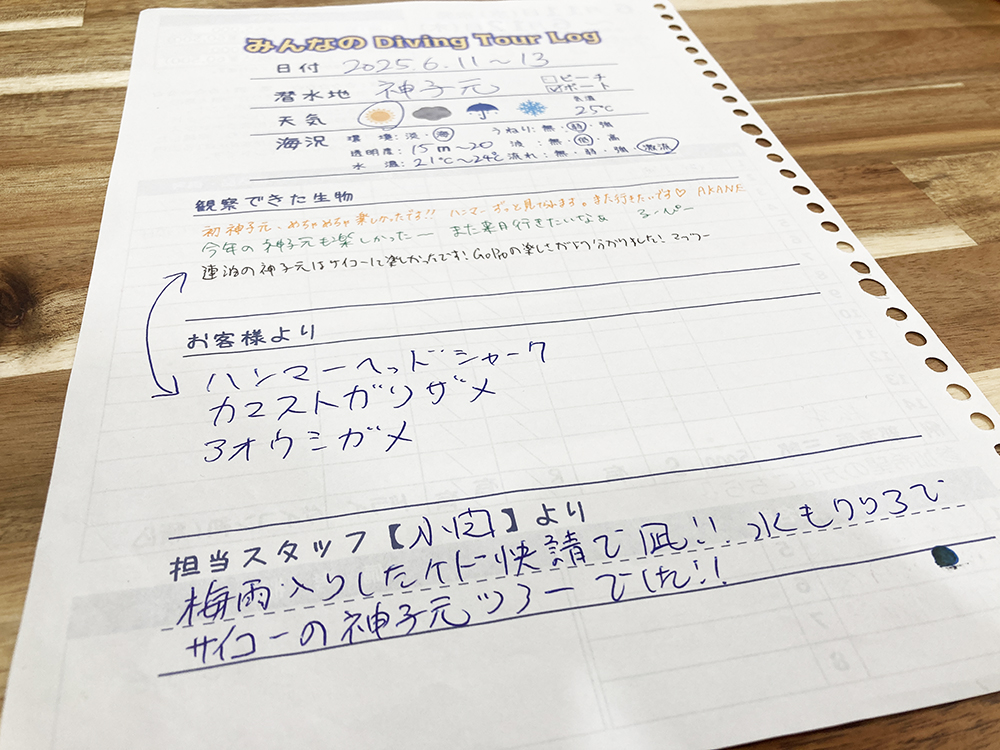 みんなの Diving Tour Log
日付 2025.6.11〜13
潜水地 神子元 □ビーチ ☑ボート
天気 気温 25℃
海況 環境:淡・海 うねり:無・弱・強
透明度:15m〜20 波:無・低・高
水温:21℃〜24℃ 流れ:無・弱・強 激流
観察できた生物
初神子元、めちゃめちゃ楽しかったです!! ハンマーずっと見てられます。また行きたいです♡ AKANE
今年の神子元も楽しかったー また来月行きたいなぁ るーぴー
連泊の神子元はサイコーに楽しかったです! GoProの楽しさがよう分かりました! マッツー
お客様より
ハンマーヘッドシャーク
カマストガリザメ
アオウミガメ
担当スタッフ【小田】より
梅雨入りしたケド快晴で凪!! 水もクリアで
サイコーの神子元ツアーでした!!